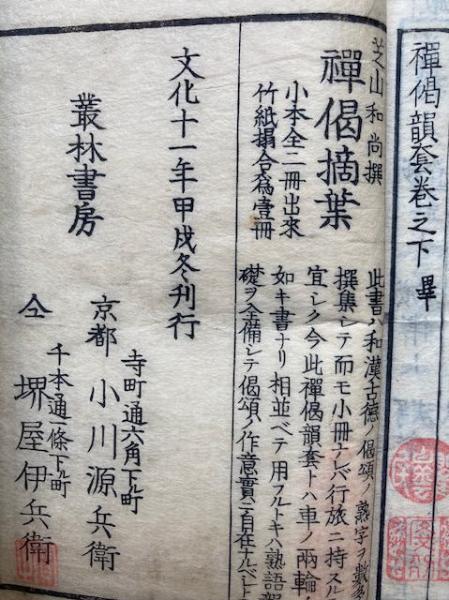 禪偈韻套卷之下 畢
芝山和尚撰
禪偈摘葉
小本全二冊出來
竹紙搨合爲壹冊
此書ハ和漢古德ノ偈頌ノ熟字ヲ數多
撰集シテ而モ小冊ナレバ行旅ニ持スル
宜シク今此禪偈韻套トハ車ノ兩輪ノ
如キ書ナリ相並ベテ用フルトキハ熟語
礎ヲ全備シテ偈頌ノ作意實ニ自在ナルベト
文化十一年甲戌冬刊行
叢林書房
寺町通六角下ル町
京都 小川源兵衛
千本通一條下ル町
仝 堺屋伊兵衛